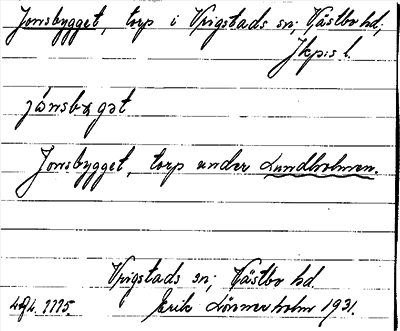 Jonsbygget, torp i Vrigstads sn; Västbo hd,
Jkps l.
jónsbygət
Jonsbygget, torp under Lundholmen.
Vrigstads sn; Västbo hd.
Erik Lönnerholm 1931.